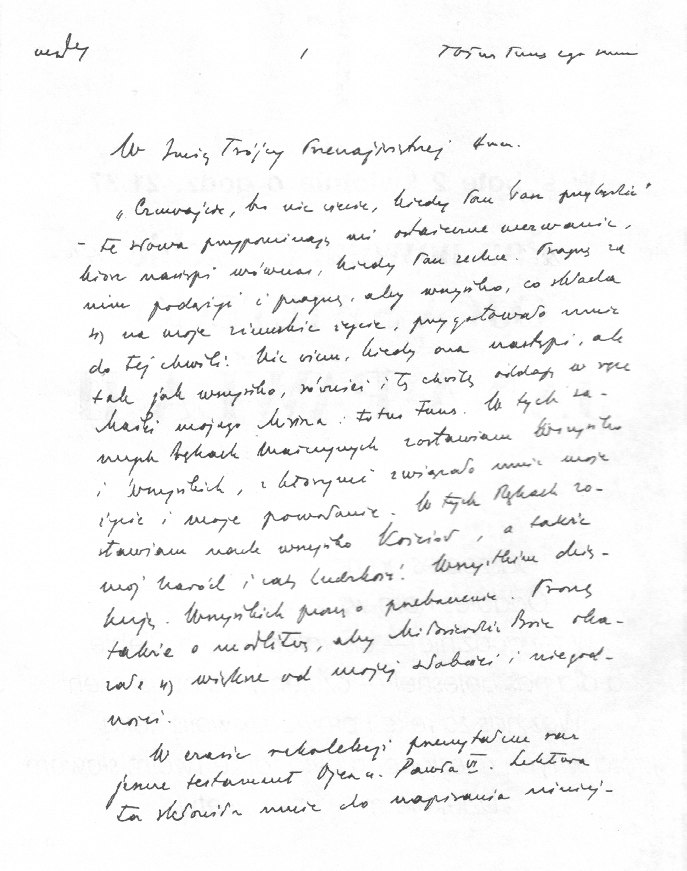 1 Totus Tuus ego sum
W Imię Trójcy Przenajświętszej. Amen.
„Czuwajcie, bo nie wiecie, kiedy Pan Wasz przybędzie”
– te słowa przypominają mi ostateczne wezwanie,
które nastąpi wówczas, kiedy Pan zechce. Pragnę za
nim podążyć i pragnę, aby wszystko, co składa
się na moje ziemskie życie, przygotowało mnie
do tej chwili. Nie wiem, kiedy ona nastąpi, ale
tak jak wszystko, również i tę chwilę oddaję w ręce
Matki mojego Mistrza: totus Tuus. W tych sa-
mych rękach Matczynych zostawiam wszystko
i Wszystkich, z którymi związało mnie moje
życie i moje powołanie. W tych Rękach zo-
stawiam nade wszystko Kościół, a także
mój Naród i całą ludzkość. Wszystkim dzię-
kuję. Wszystkich proszę o przebaczenie. Proszę
także o modlitwę, aby Miłosierdzie Boże oka-
zało się większe od mojej słabości i niegod-
ności.
W czasie rekolekcji przeczytałem raz
jeszcze testament Ojca św. Pawła VI. Lektura
ta skłoniła mnie do napisania niniej-